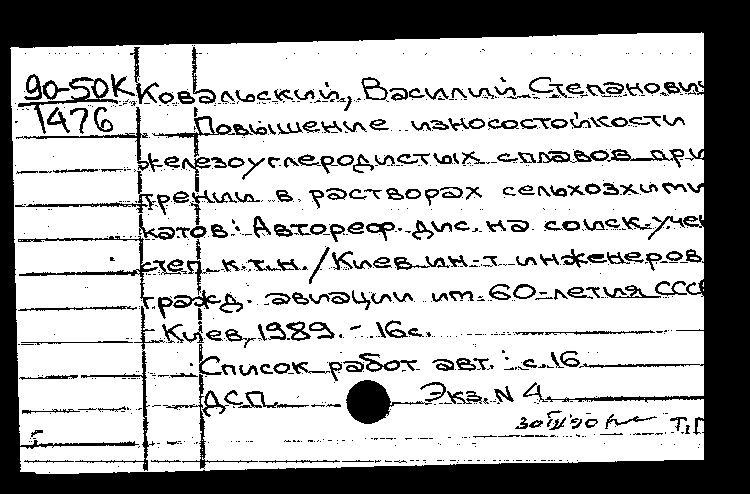 90-50К Ковальский, Василий Степанович
1476 Повышение износостойкости
железоуглеродистых сплавов при
трении в растворах сельхозхими
катов: Автореф. дис. на соиск. учен
степ. к.т.н. / Киев. ин-т инженеров
гражд. авиации им. 60-летия СССР
- Киев, 1989. - 16с.
Список работ авт.: с.16.
ДСП. Экз. N 4.